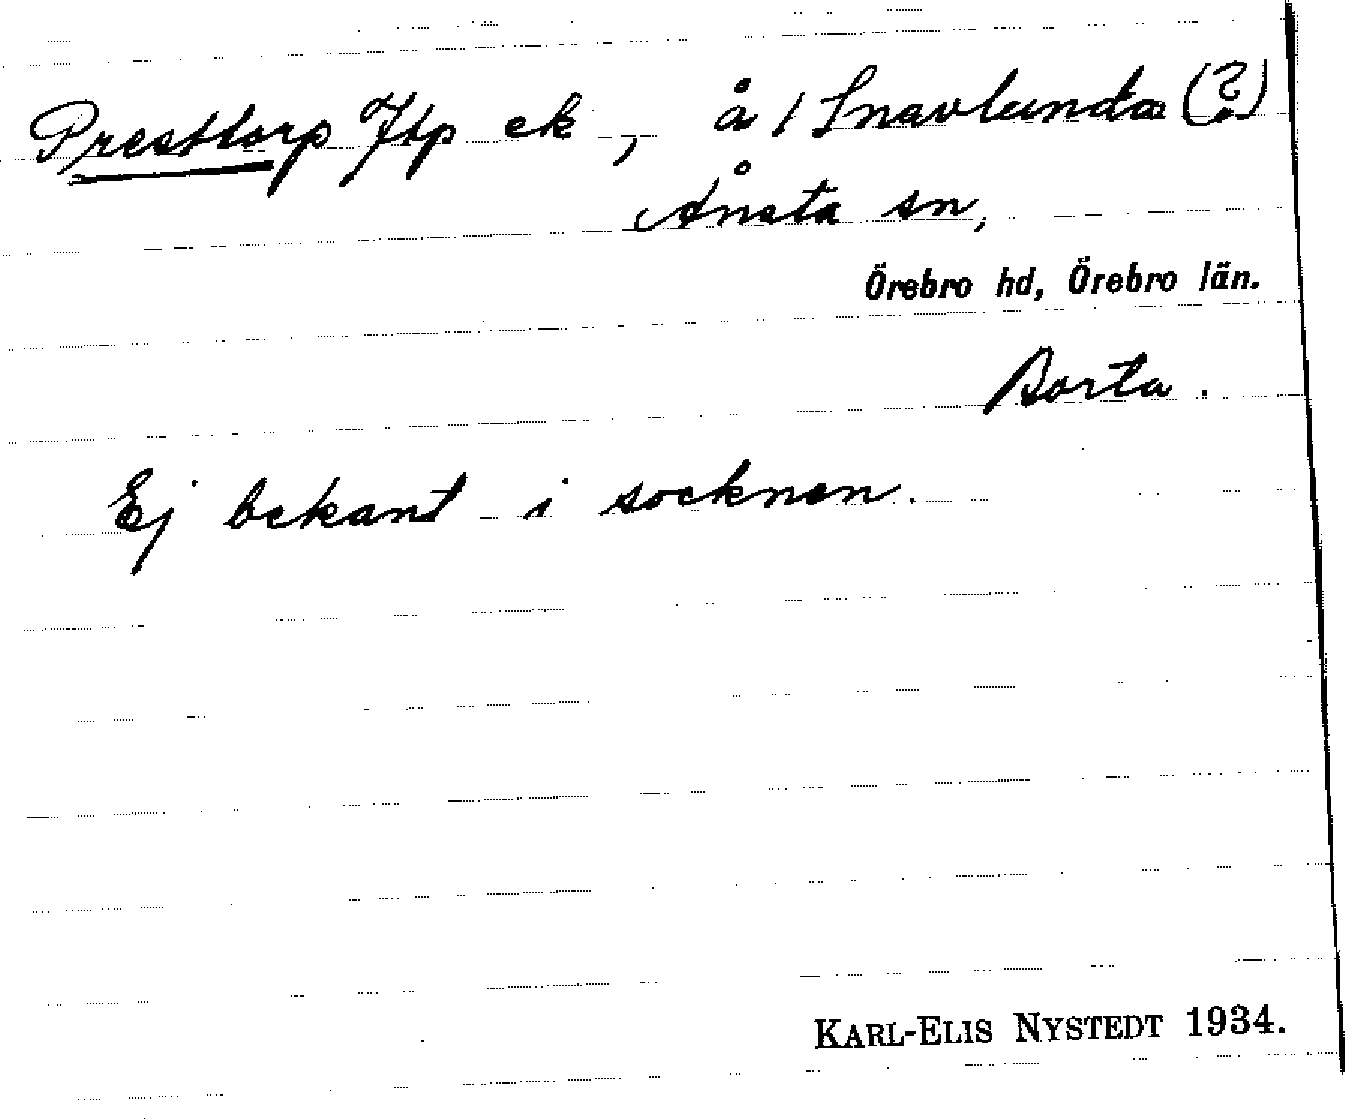 Presttorp Jtp ek, å 1 Snavlunda (?)
Ånsta sn,
Örebro hd, Örebro län.
Borta.
Ej bekant i socknen.
KARL-ELIS NYSTEDT 1934.